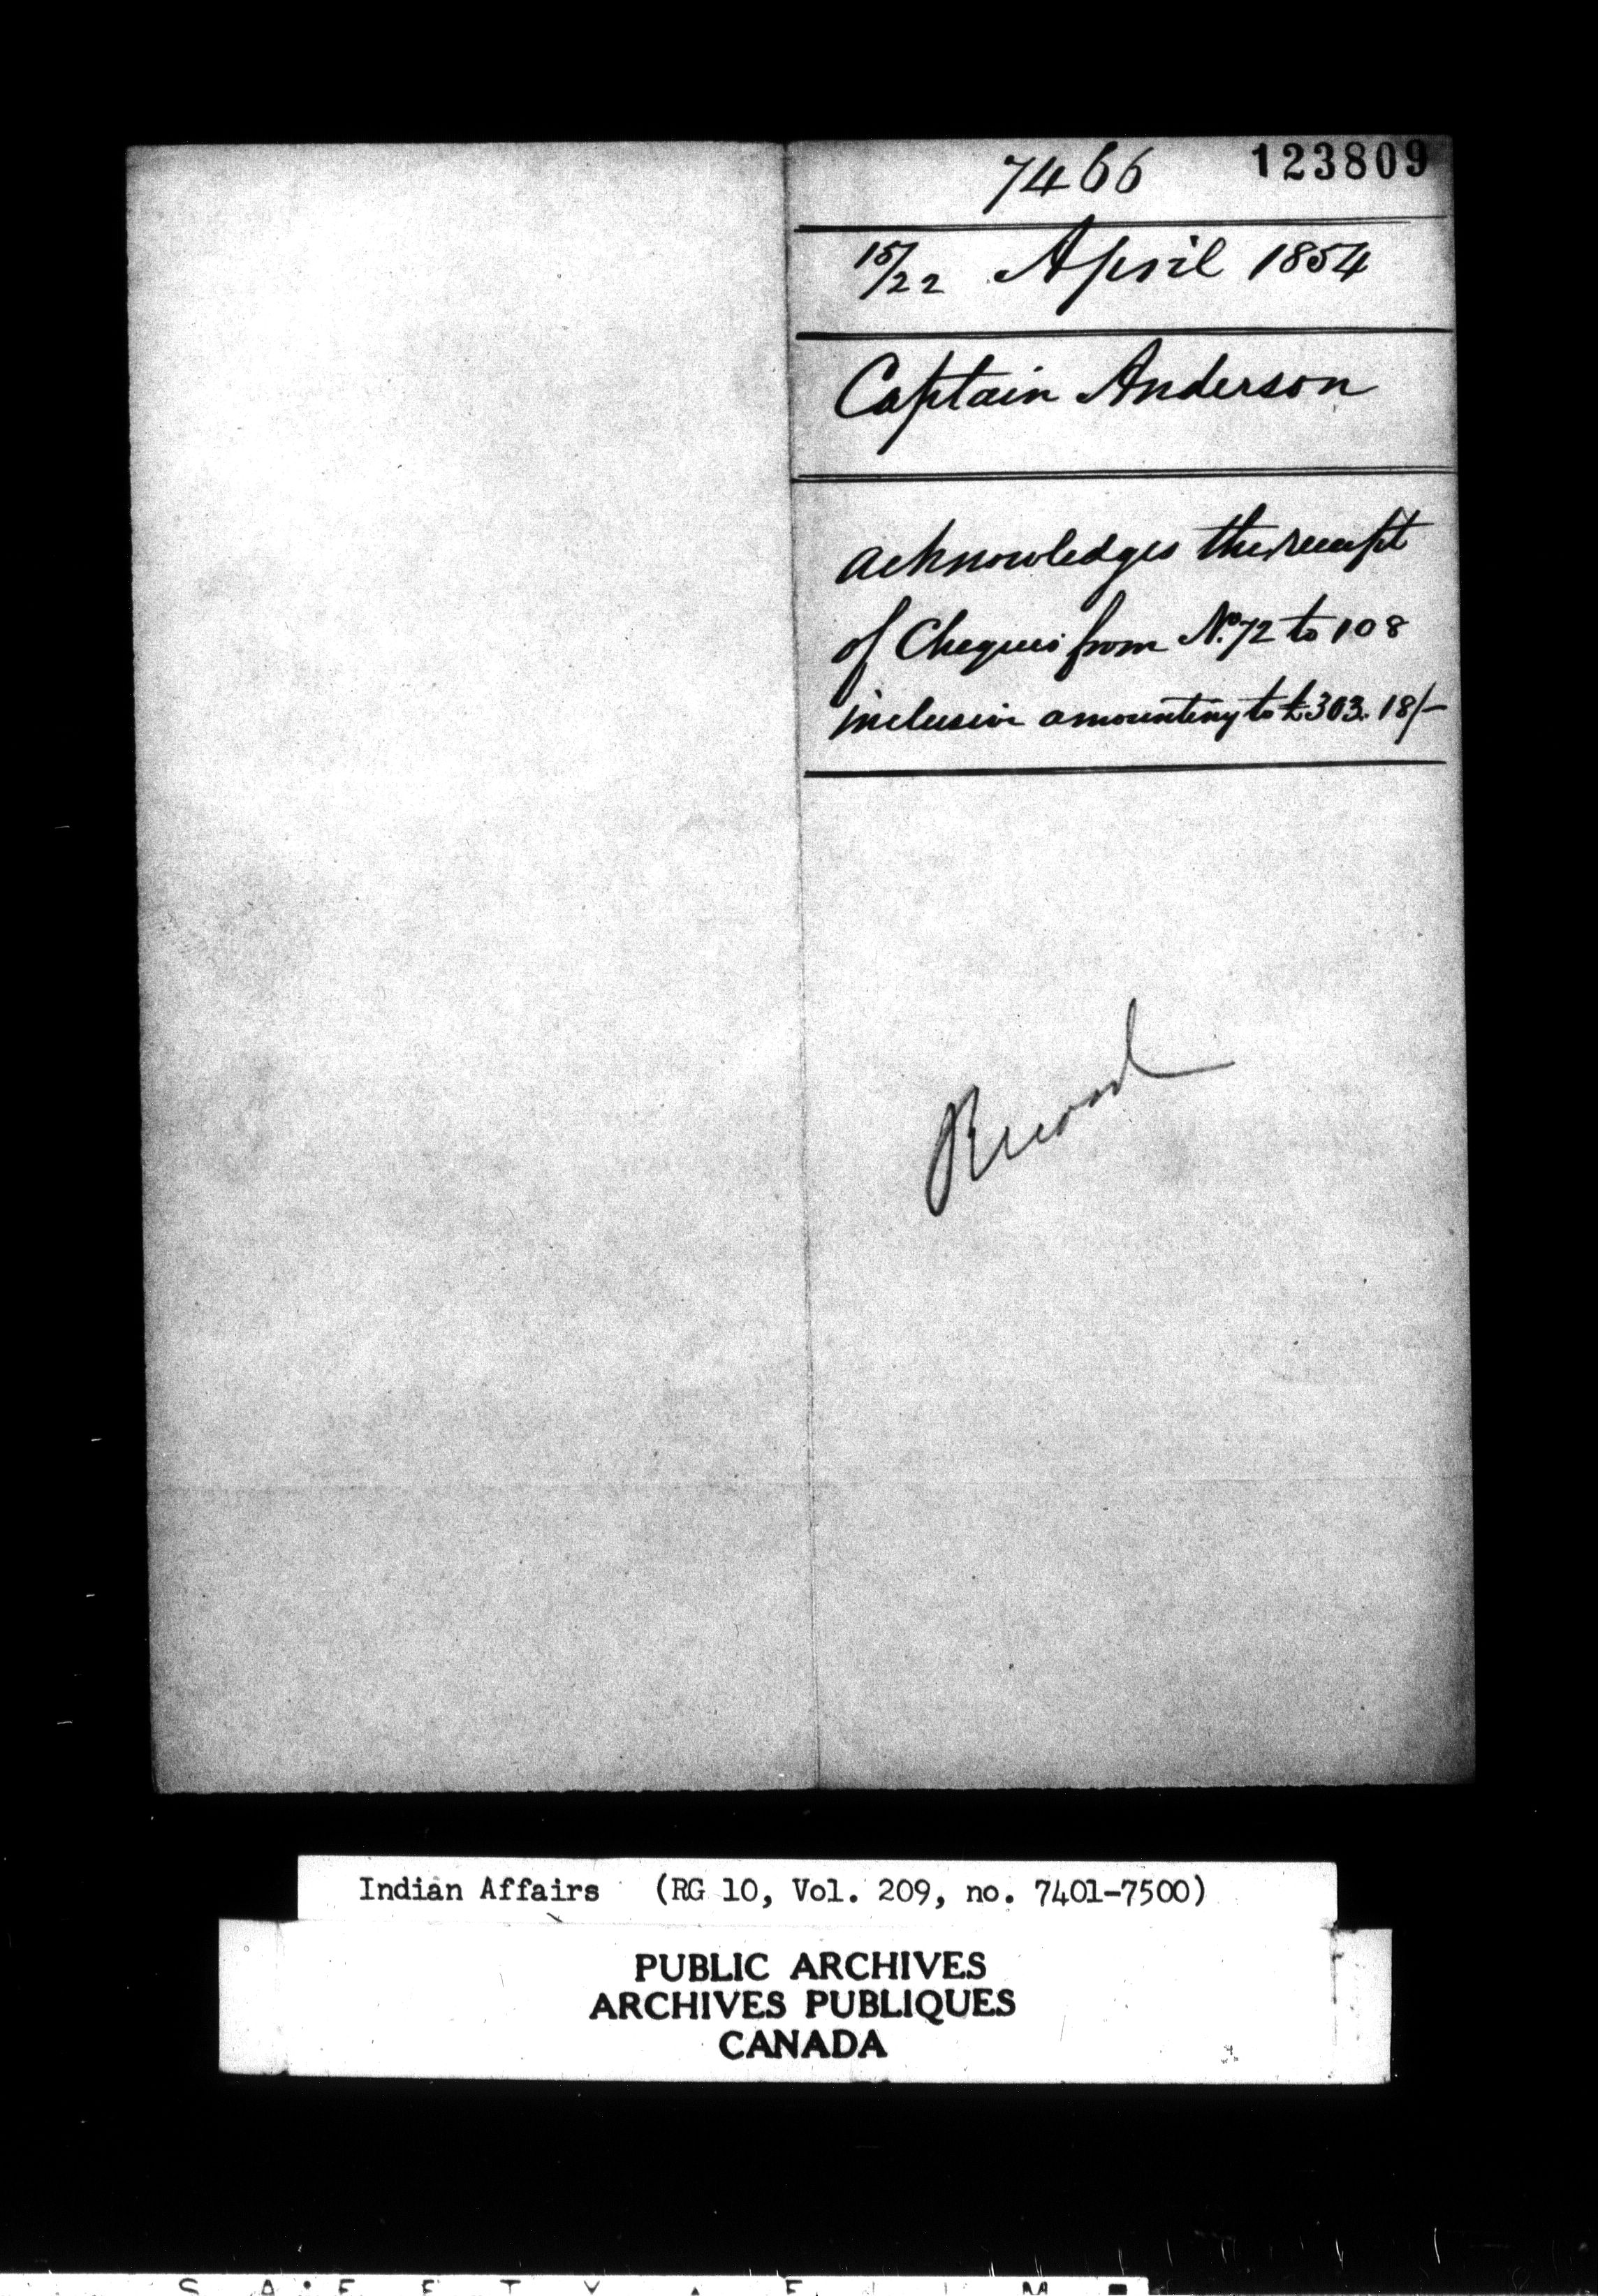 7466
123809
15/22 April 1854
Captain Anderson
acknowledges the receipt
of Cheques from No. 72 to 108
inclusive amounting to £303. 18/-
Record
Indian Affairs (RG 10, Vol. 209, no. 7401-7500)
PUBLIC ARCHIVES
ARCHIVES PUBLIQUES
CANADA